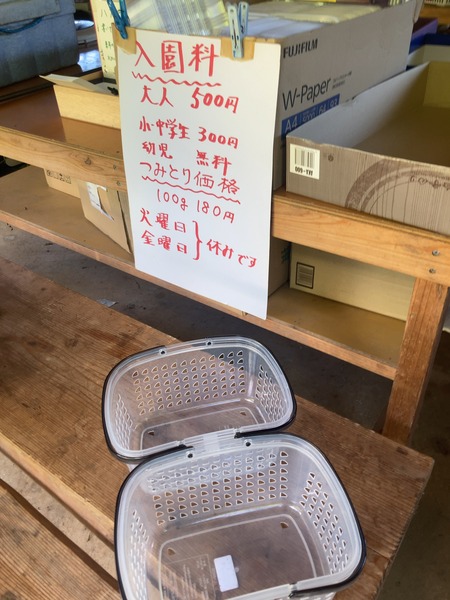 入園料
大人 500円
小・中学生 300円
幼児 無料
つみとり価格
100g 180円
火曜日
金曜日
} 休みです
FUJIFILM
W-Paper
A4